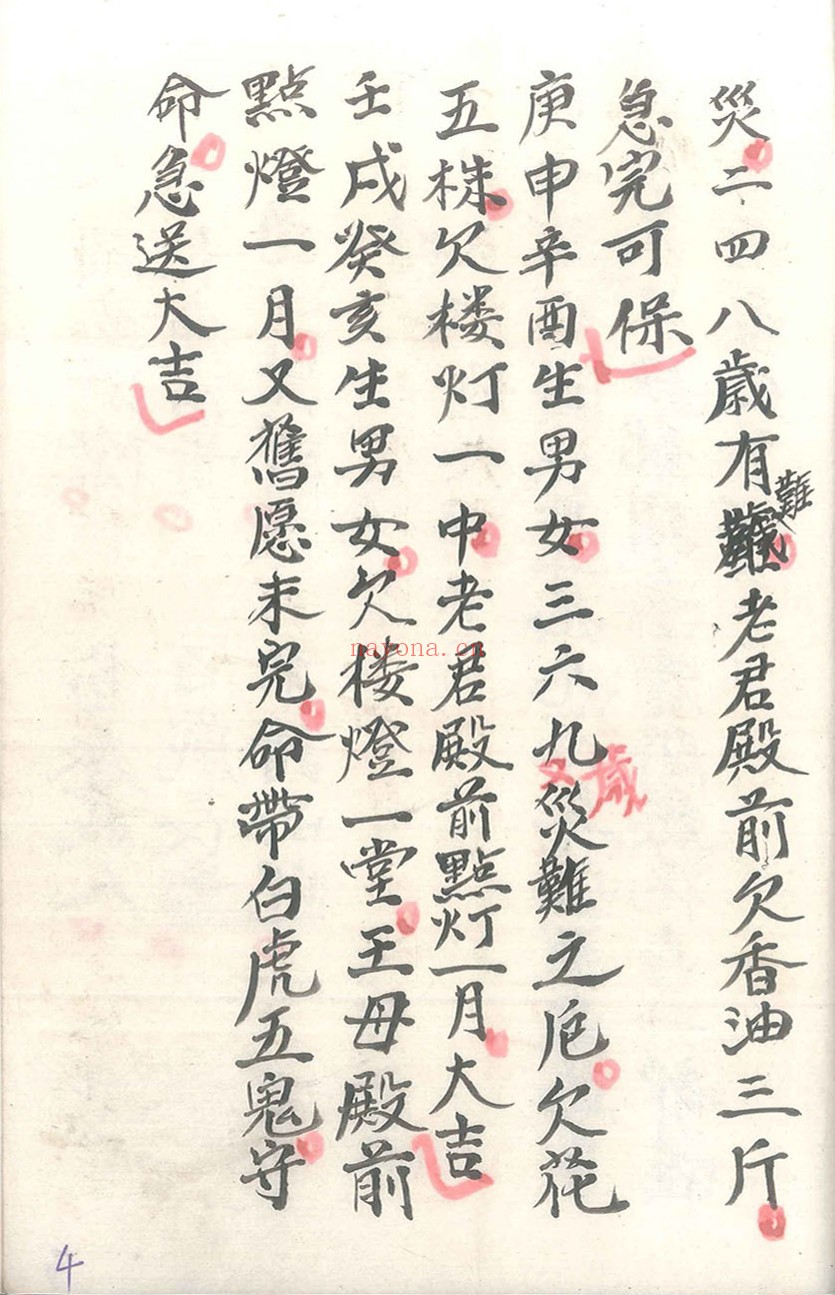 災二四八歳有難老君殿前欠香油三斤
急完可保
庚申辛酉生男女三六九歳災難之厄欠花
五株欠楼灯一中老君殿前點灯一月大吉
壬戌癸亥生男女欠楼燈一堂王母殿前
點燈一月又舊愿未完命帶白虎五鬼守
命急送大吉
4
nayona.cn